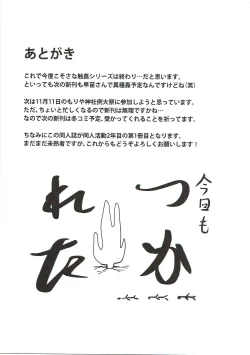 あとがき
これで今度こそさな触姦シリーズは終わり…だと思います。
といっても次の新刊も早苗さんで異種姦予定なんですけどね(笑)
次は11月11日のもりや神社例大祭に参加しようと思っています。
ただ、ちょいと忙しくなるので新刊は無理ですかね…
なので次の新刊は冬コミ予定、受かってくれることを祈ってます。
ちなみにこの同人誌が同人活動2年目の第1冊目となります。
まだまだ未熟者ですが、これからもどうぞよろしくお願いします！
今回も
つか
れた